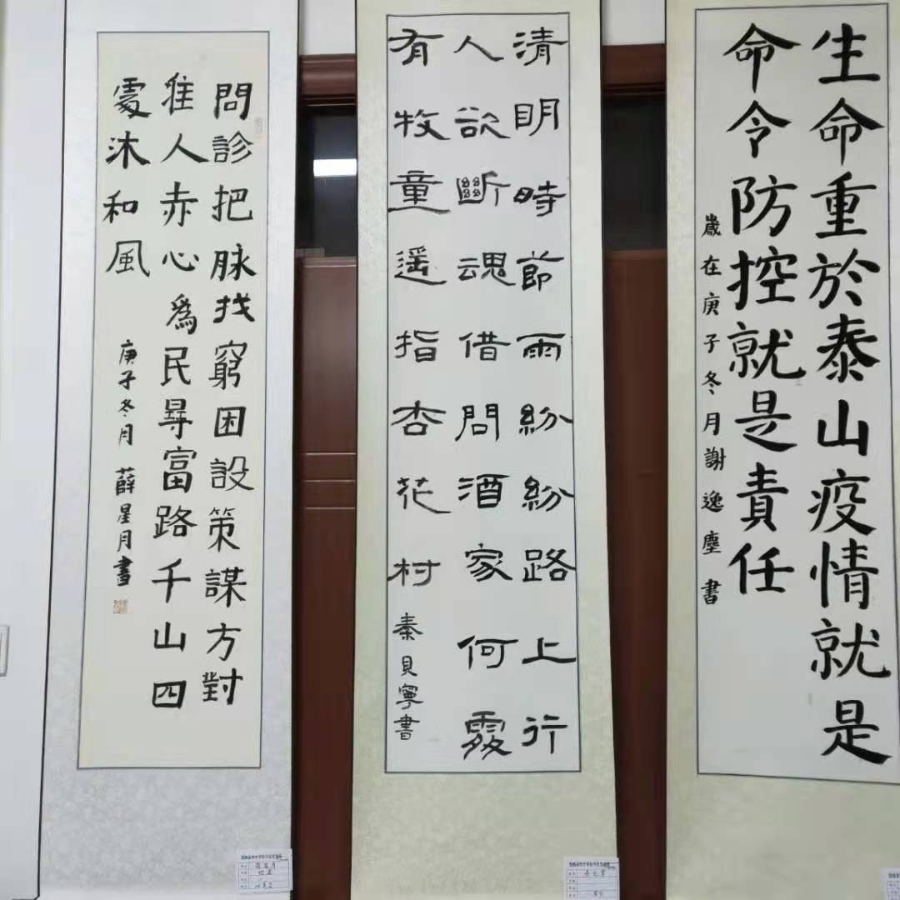 問診把脉找窮困設策謀方對
准人赤心爲民尋富路千山四
處沐和風
庚子冬月 薛星月書
清明時節雨紛紛路上行
人欲斷魂借問酒家何處
有牧童遥指杏花村
秦貝寧書
生命重於泰山疫情就是
命令防控就是責任
歲在庚子冬月謝逸塵書